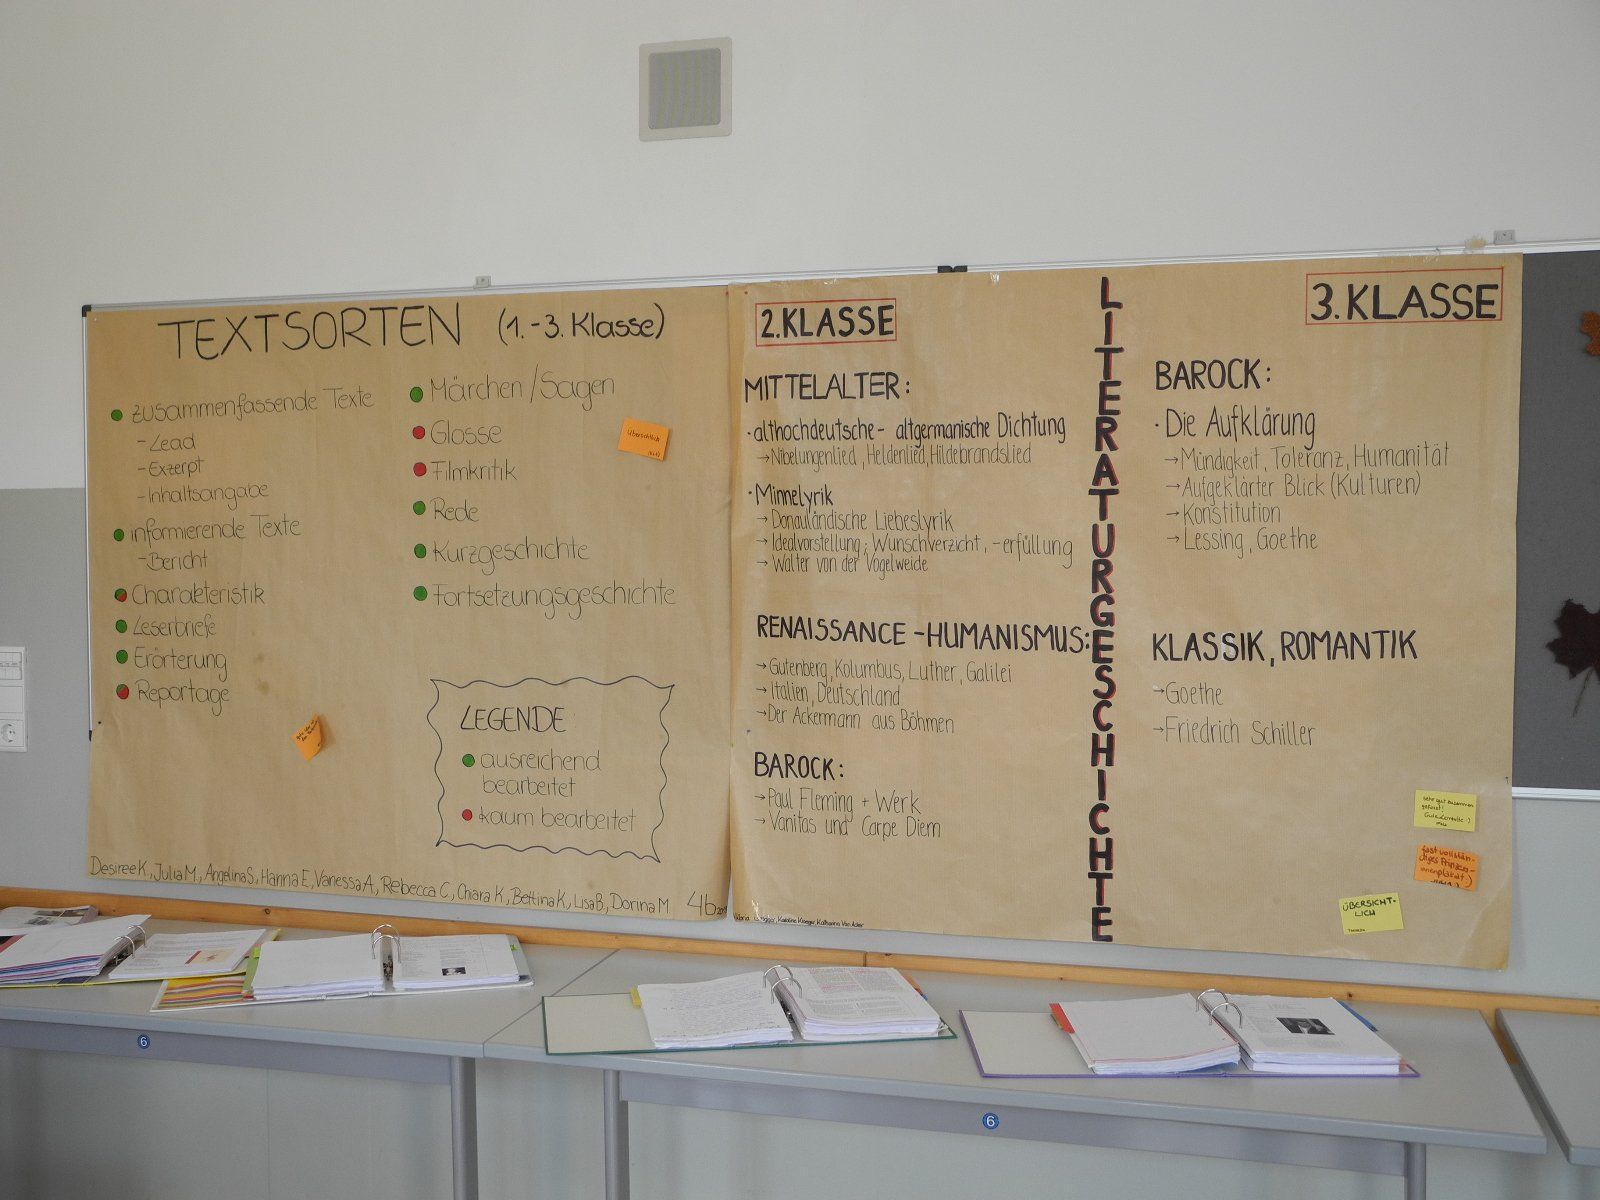 TEXTSORTEN (1.-3. Klasse)
zusammenfassende Texte
-Lead
-Exzerpt
-Inhaltsangabe
informierende Texte
-Bericht
Charakteristik
Leserbriefe
Erörterung
Reportage
Märchen/Sagen
Glosse
Filmkritik
Rede
Kurzgeschichte
Fortsetzungsgeschichte
Übersichtlich
LEGENDE
ausreichend
bearbeitet
kaum bearbeitet
Desiree K., Julia M., Angelina S., Hanna E., Vanessa A., Rebecca C., Chiara K., Bettina K., Lisa B., Dorina M. 4b
2.KLASSE
MITTELALTER:
·althochdeutsche- altgermanische Dichtung
→Nibelungenlied, Heldenlied, Hildebrandslied
·Minnelyrik
→Donauländische Liebeslyrik
→Idealvorstellung, Wunschverzicht, -erfüllung
→Walter von der Vogelweide
RENAISSANCE-HUMANISMUS:
→Gutenberg, Kolumbus, Luther, Galilei
→Italien, Deutschland
→Der Ackermann aus Böhmen
BAROCK:
→Paul Fleming + Werk
→Vanitas und Carpe Diem
LITERATURGESCHICHTE
3.KLASSE
BAROCK:
·Die Aufklärung
→Mündigkeit, Toleranz, Humanität
→Aufgeklärter Blick (Kulturen)
→Konstitution
→Lessing, Goethe
KLASSIK, ROMANTIK
→Goethe
→Friedrich Schiller
sehr gut zusammen
gefasst!
fast vollstän-
diges
ÜBERSICHT-
LICH
6
6